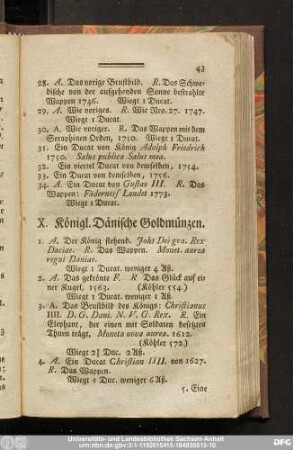 43
28. A. Das vorige Brustbild. R. Das Schwe-
dische von der aufgehenden Sonne bestrahlte
Wappen 1746. Wiegt 1 Ducat.
29. A. Wie voriges. R. Wie Nro. 27. 1747.
Wiegt 1 Ducat.
30. A. Wie voriger. R. Das Wappen mit dem
Seraphinen Orden, 1750. Wiegt 1 Ducat.
31. Ein Ducat von König Adolph Friedrich
1750. Salus publica Salus mea.
32. Ein viertel Ducat von demselben, 1754.
33. Ein Ducat von demselben, 1756.
34. A. Ein Ducat von Gustav III. R. Das
Wappen: Fäderneslandet 1773.
Wiegt 1 Ducat.
X. Königl. Dänische Goldmünzen.
1. A. Der König stehend. Johs Dei gra. Rex
Daciae. R. Das Wappen. Monet. aurea
regni Daniae.
Wiegt 1 Ducat. weniger 4 Aß.
2. A. Das gekrönte F. R Das Glück auf ei-
ner Kugel, 1563. (Köhler 554.)
Wiegt 1 Ducat. weniger 1 Aß
3. A. Das Brustbild des Königs: Christianus
IIII. D. G. Dani. N. V. G. Rex. R. Ein
Elephant, der einen mit Soldaten besetzten
Thurn trägt, Moneta nova aurea. 1612.
(Köhler 572.)
Wiegt 2½ Duc. 2 Aß.
4. A. Ein Ducat Christian IIII. von 1627.
R. Das Wappen.
Wiegt 1 Duc. weniger 6 Aß.
5. Eine
Universitäts- und Landesbibliothek Sachsen-Anhalt
urn:nbn:de:gbv:3:1-1192015415-184035815-10
DFG